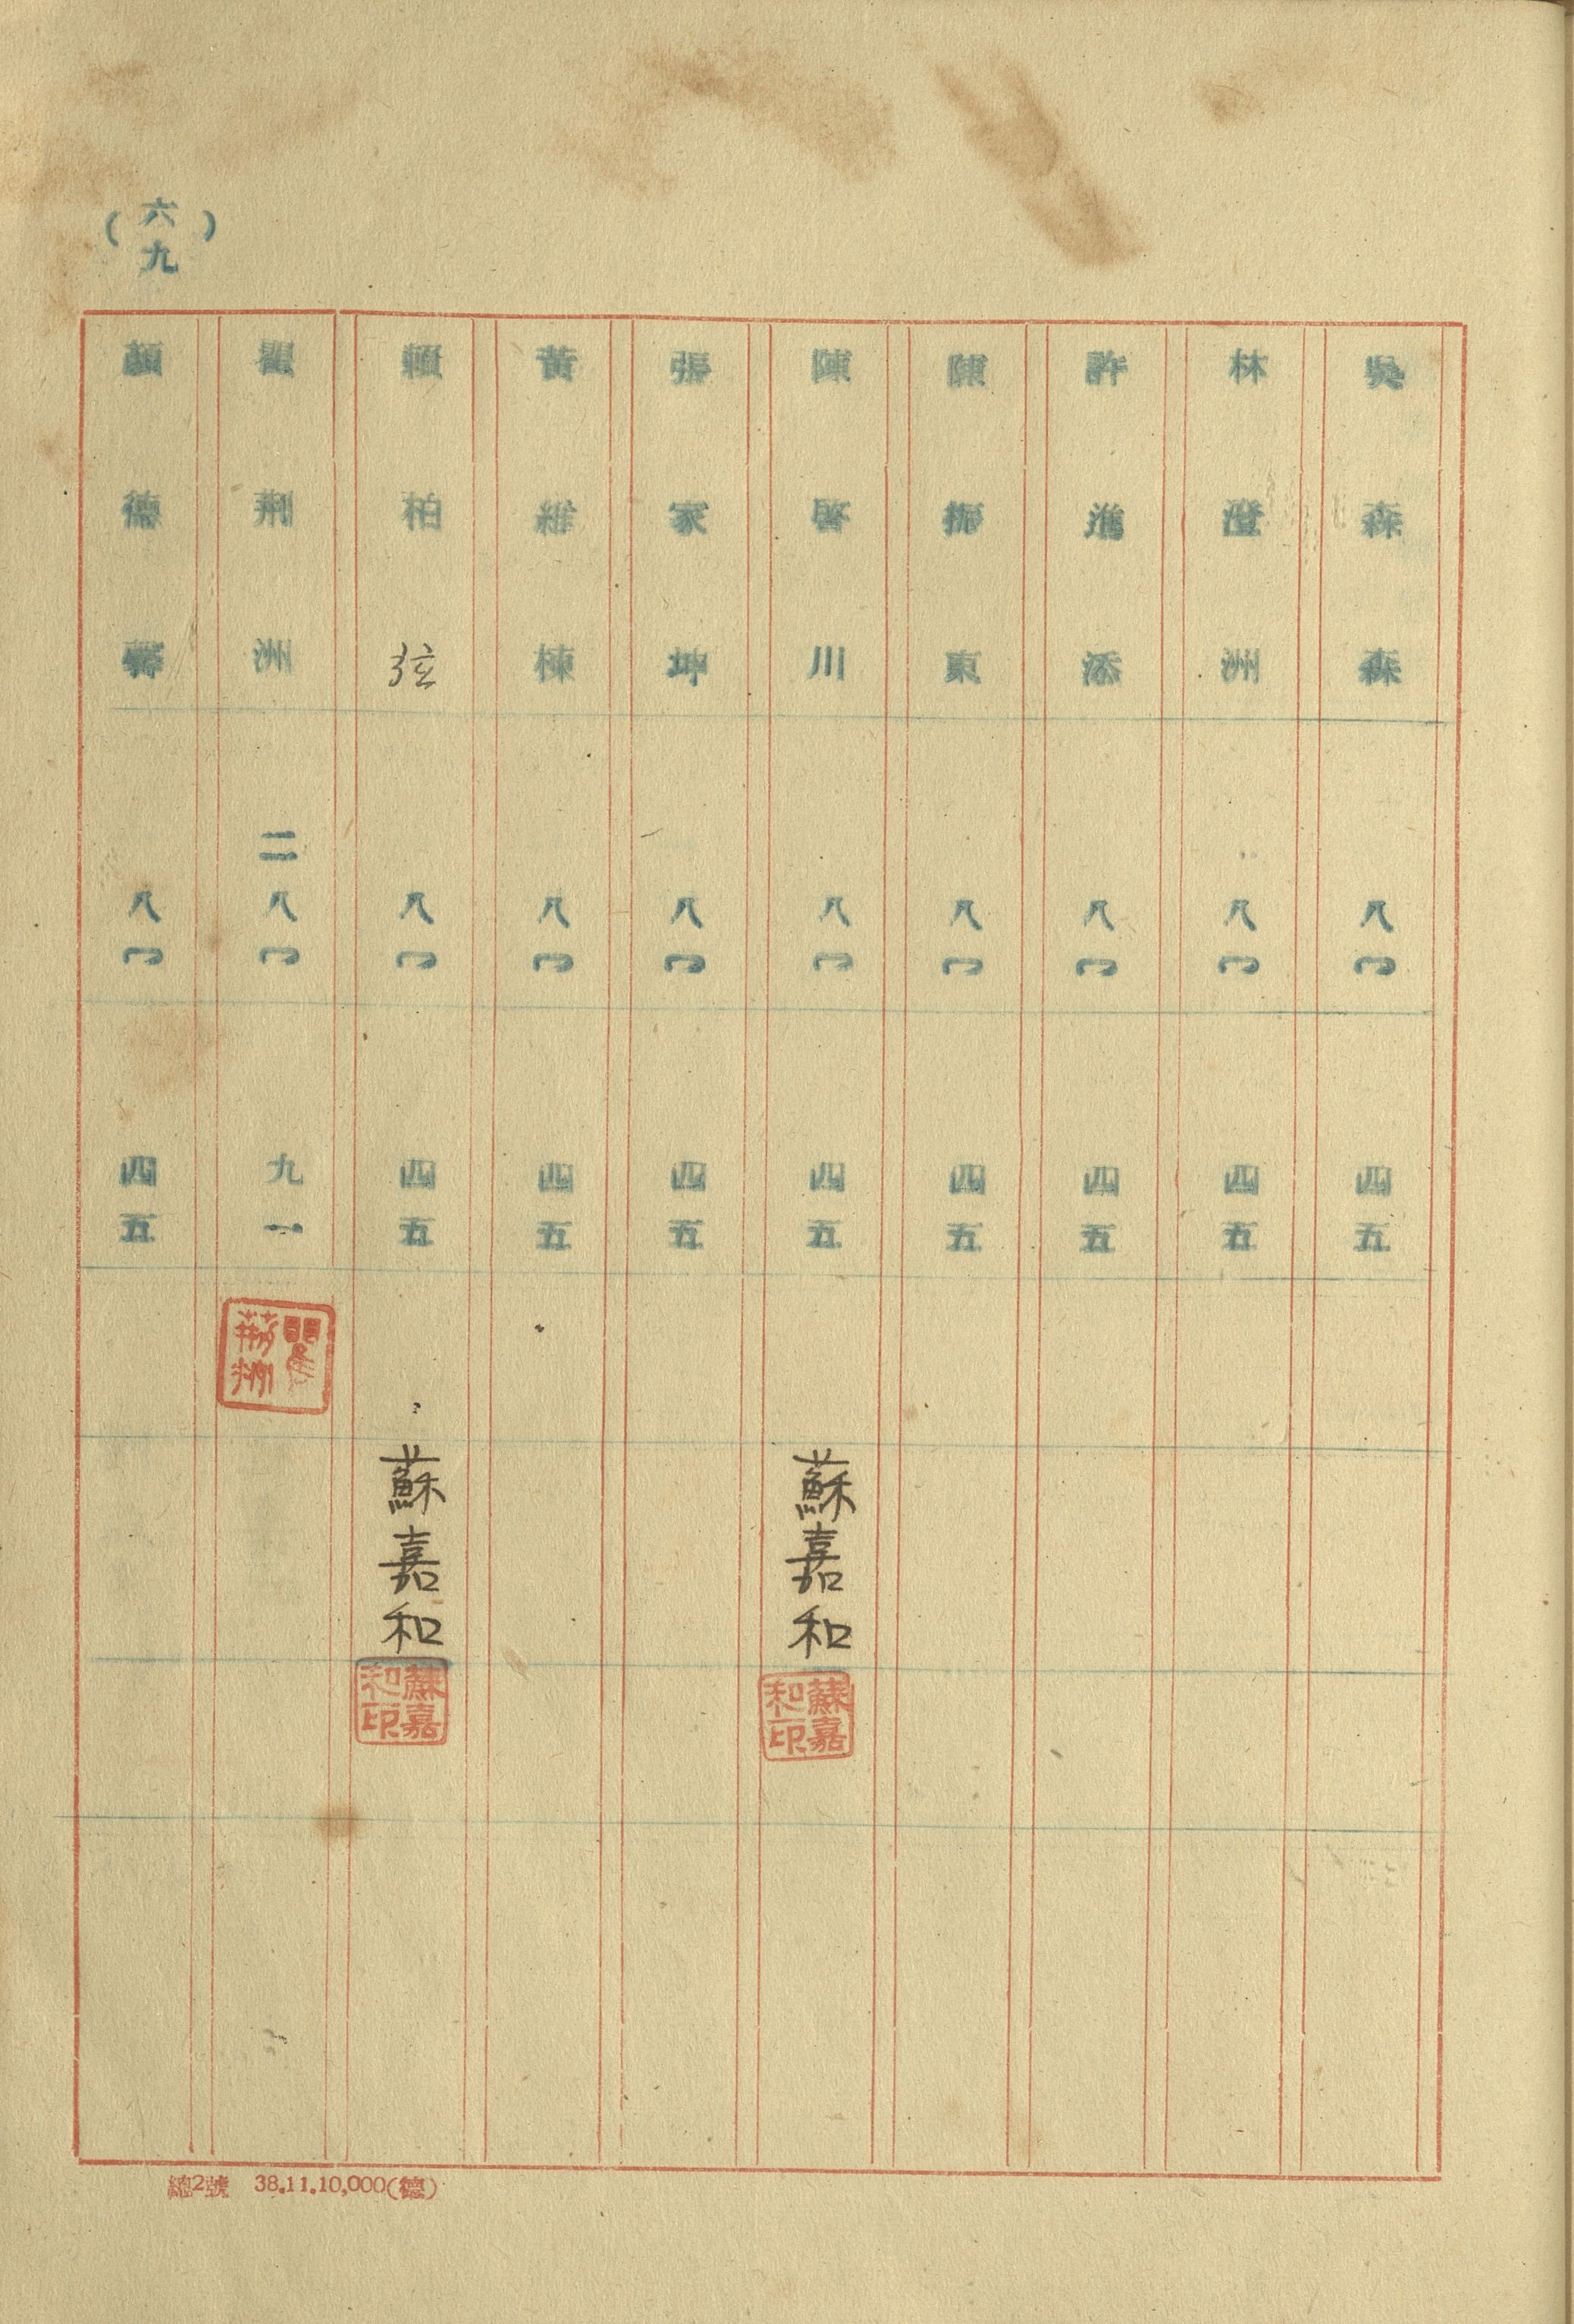 吳森森 八〇 四五
林澄洲 八〇 四五
許進添 八〇 四五
陳振東 八〇 四五
陳啓川 八〇 四五 蘇嘉和 蘇嘉和印
張家坤 八〇 四五
黃維棟 八〇 四五
賴柏弦 八〇 四五 蘇嘉和 蘇嘉和印
瞿荆洲 二八〇 九一 瞿荆洲
顏德馨 八〇 四五
(六九)
總2號 38.11.10,000(德)